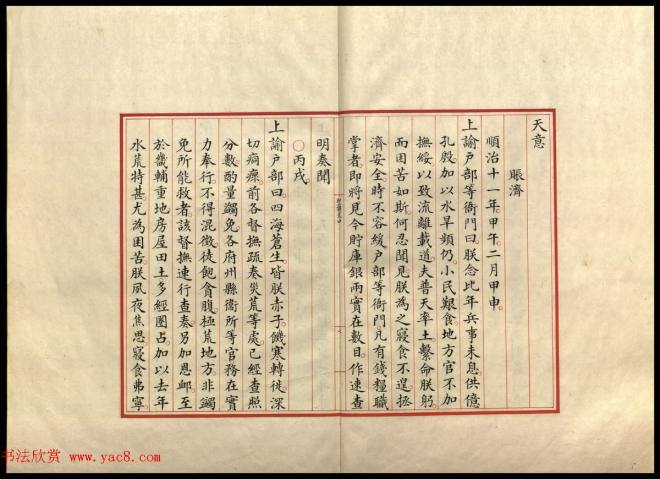 天意
賑濟
順治十一年甲午二月甲申
上諭戶部等衙門曰朕念比年兵事未息供億
孔殷加以水旱頻仍小民艱食地方官不加
撫綏以致流離載道夫普天率土繫命朕躬
而困苦如斯何忍聞見朕為之寢食不遑拯
濟安全時不容緩戶部等衙門凡有錢糧職
掌者即將見今貯庫銀兩實在數目作速查
明奏聞
○丙戌
上諭戶部曰四海蒼生皆朕赤子饑寒轉徙深
切痌瘝前各督撫疏奏災荒等處已經查照
分數酌量蠲免各府州縣衛所等官務在實
力奉行不得混徵徒飽貪腹極荒地方非蠲
免所能救者該督撫速行查奏另加恩卹至
於畿輔重地房屋田土多經圈占加以去年
水荒特甚尤為困苦朕夙夜焦思寢食弗寧
书法欣赏 www.yac8.com